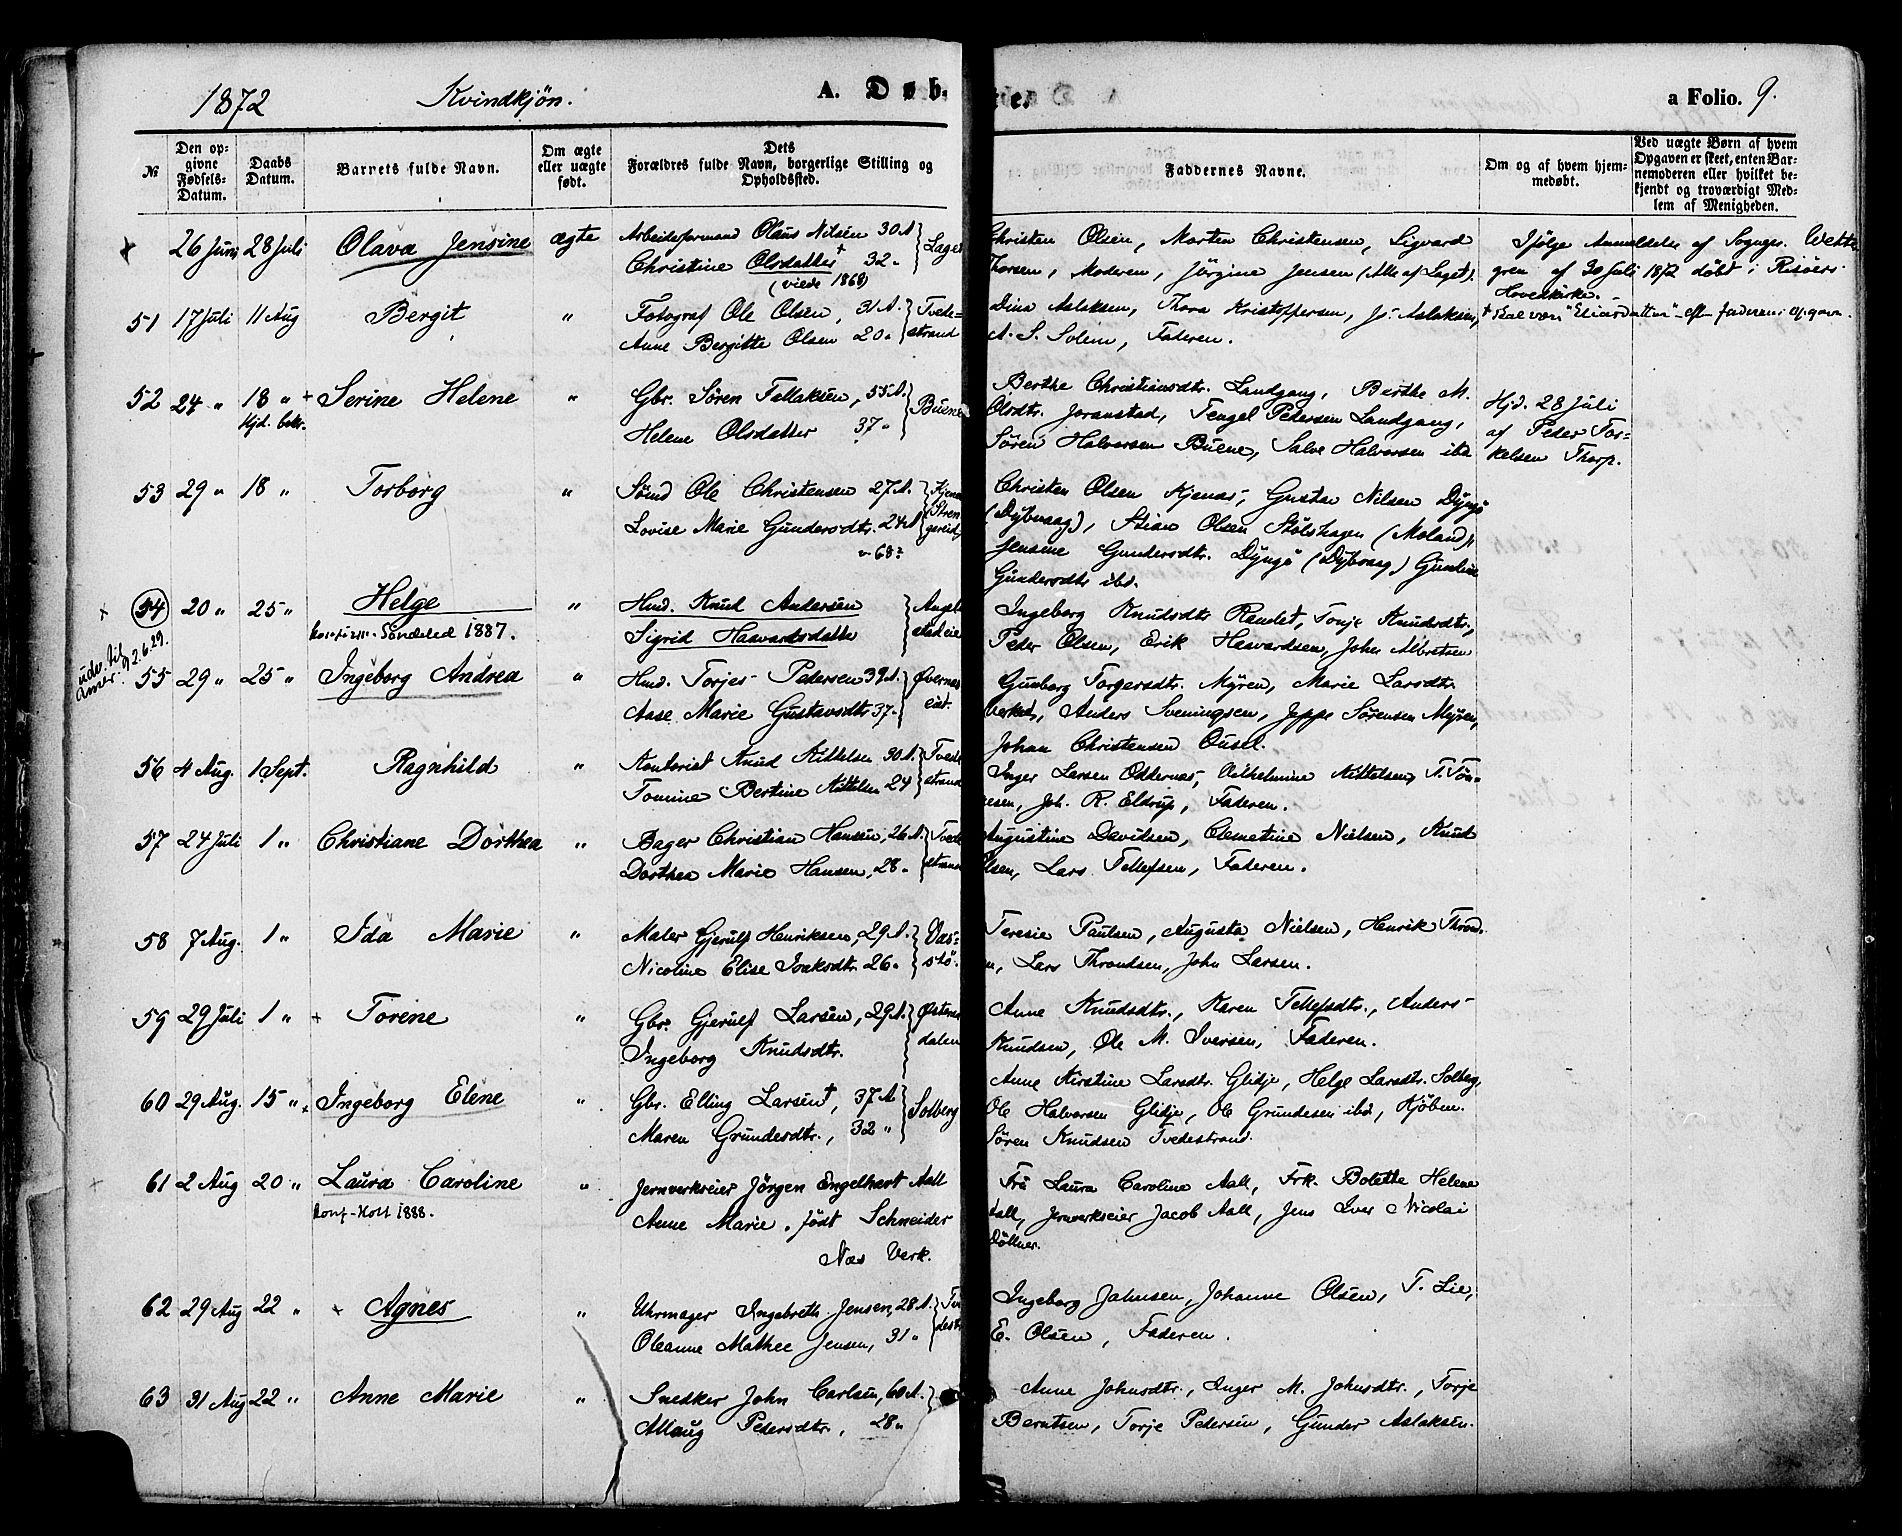 1872 Kvindkjön. A. Døb- te. a Folio. 9.
№ Den opgivne Fødsels-Datum. Daabs Datum. Barnets fulde Navn. Om ægte eller uægte født. Dets Forældres fulde Navn, borgerlige Stilling og Opholdssted. Faddernes Navne. Om og af hvem hjemmedøbt. Ved uægte Børn af hvem Opgaven er skeet, enten Barnemoderen eller hvilket bekjendt og troværdigt Medlem af Menigheden.
26 Juni 28 Juli Olava Jensine ægte Arbeidsformand Olaus Nilsen 30 A Laget Christen Olsen, Morten Christensen, Sigvard Ifølge Anmeldelse af Sogneps. Wette
Christine Olsdatter + 32 " Thorsen, Moderen, Jörgine Jensen (Alle af Laget). gren af 30 Juli 1872 döbt i Risöers
(viede 1868) Hovedkirke.
51 17 Juli 11 Aug Bergit " Fotograf Ole Olsen, 31 A. Tvede- Dina Aslaksen, Thora Kristoffersen, Js. Aslaksen, + skal være "Eliasdatter" efter faderens opgave.
Anne Bergitte Olsen 20 " strand A. S. Solem, Faderen.
52 24 " 18 " + Serine Helene " Gbr. Sören Tellaksen, 55 A. Buene Berthe Christiansdtr. Landgang, Berthe M. Hjd. 28 Juli
Hjd. bekr. Helene Olsdatter 37 " Olsdtr. Joranstad, Tengel Pedersen Landgang, af Peder Tor-
Sören Halvorsen Buene, Salve Halvorsen ibd kelsen Thorp.
53 29 " 18 " Torborg " Sømd Ole Christensen 27 A. Kjenas Christen Olsen Kjenas, Gustav Nilsen Dÿngö
Lovise Marie Gundersdtr. 24 A Strengereid (Dybvaag), Stian Olsen Stölshagen (Moland),
v 68? Jensine Gundersdtr. Dÿngö (Dÿbvaag) Gunhild
Gundersdtr ibd.
54 20 " 25 " Helge " Hmd. Knud Andersen Angelstad eie Ingeborg Knudsdtr Ramlet, Tonje Knudsdtr.,
Konfirm. Söndeled 1887. Sigrid Haavardsdatter Peder Olsen, Erik Haavardsen, John Albretsen
udv. til Amer. 92.6.29.
55 29 " 25 " Ingeborg Andrea " Hmd. Torjes Pedersen 39 A. Øvernes Gunborg Torgersdtr. Myren, Marie Larsdtr.
Aase Marie Gustavsdtr 37 " eie. Verket, Anders Sveningsen, Jeppe Sörensen Mÿren,
Johan Christensen Ousel.
56 4 Aug. 1 Sept. Ragnhild " Kontorist Knud Kittelsen 30 A. Tvede Inger Larsen Osternes, Vilhelmine Kittelsen, T. Tön-
Tomine Bertine Kittelsen 24 strand nesen, Joh. R. Eldrup, Faderen.
57 24 Juli 1 " Christiane Dorthea " Bager Christian Hansen, 26 A. Tvede Augustine Davidsen, Clemetine Nielsen, Knud
Dorthea Marie Hansen, 28 " strand Olsen, Lars Tellefsen, Faderen.
58 7 Aug. 1 " Ida Marie " Maler Gjerulf Henriksen, 29 A. Vas- Teresie Paulsen, Augusta Nielsen, Henrik Thrond.
Nicoline Elise Isaksdtr. 26 " stö. n, Lars Throndsen, John Larsen.
59 29 Juli 1 " + Torene " Gbr. Gjerulf Larsen, 29 A. Østens Anne Knudsdtr., Karen Tellefsdtr., Anders
Ingeborg Knudsdtr. dalen Knudsen, Ole M. Iversen, Faderen.
60 29 Aug. 15 " + Ingeborg Elene " Gbr. Elling Larsen †, 37 A Solberg Anne Kirstine Larsdtr. Glidje, Helge Larsdtr. Solberg,
Maren Grundesdtr., 32 " Ole Halvorsen Glidje, Ole Grundesen ibd, Kjöbm.
Sören Knudsen Tvedestrand.
61 2 Aug 20 " Laura Caroline " Jernverkseier Jörgen Engelhart Aall Fru Laura Caroline Aall, Frk. Bolette Helene
Konf-Holt 1888. Anne Marie, födt Schneider Aall, Jernverkseier Jacob Aall, Jens Iver Nicolai
Næs Verk. Zöllner.
62 29 Aug 22 " + Agnes " Uhrmager Ingebreth Jensen, 28 A. Tvedestr Ingeborg Johnsen, Johanne Olsen, T. Lie,
Oleanne Mathee Jensen, 31 " E. Olsen, Faderen.
63 31 Aug 22 " Anne Marie " Snedker John Carlsen, 60 A. Anne Johnsdtr., Inger M. Johnsdtr., Torje
Allaug Pedersdtr., 28 " Berntsen, Torje Pedersen, Gunder Aslaksen.